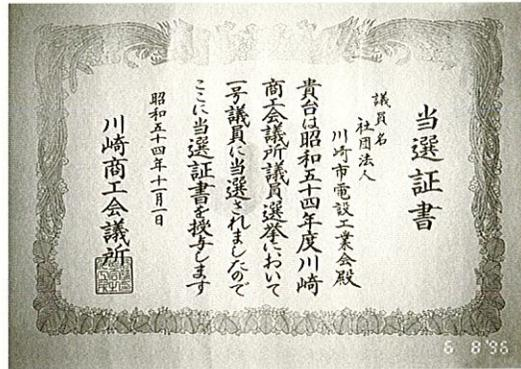 当選証書
議員名
社団法人
川崎市電設工業会殿
貴台は昭和五十四年度川崎
商工会議所議員選挙において
一号議員に当選されましたので
ここに当選証書を授与します
昭和五十四年十一月一日
川崎商工会議所
6 8'96